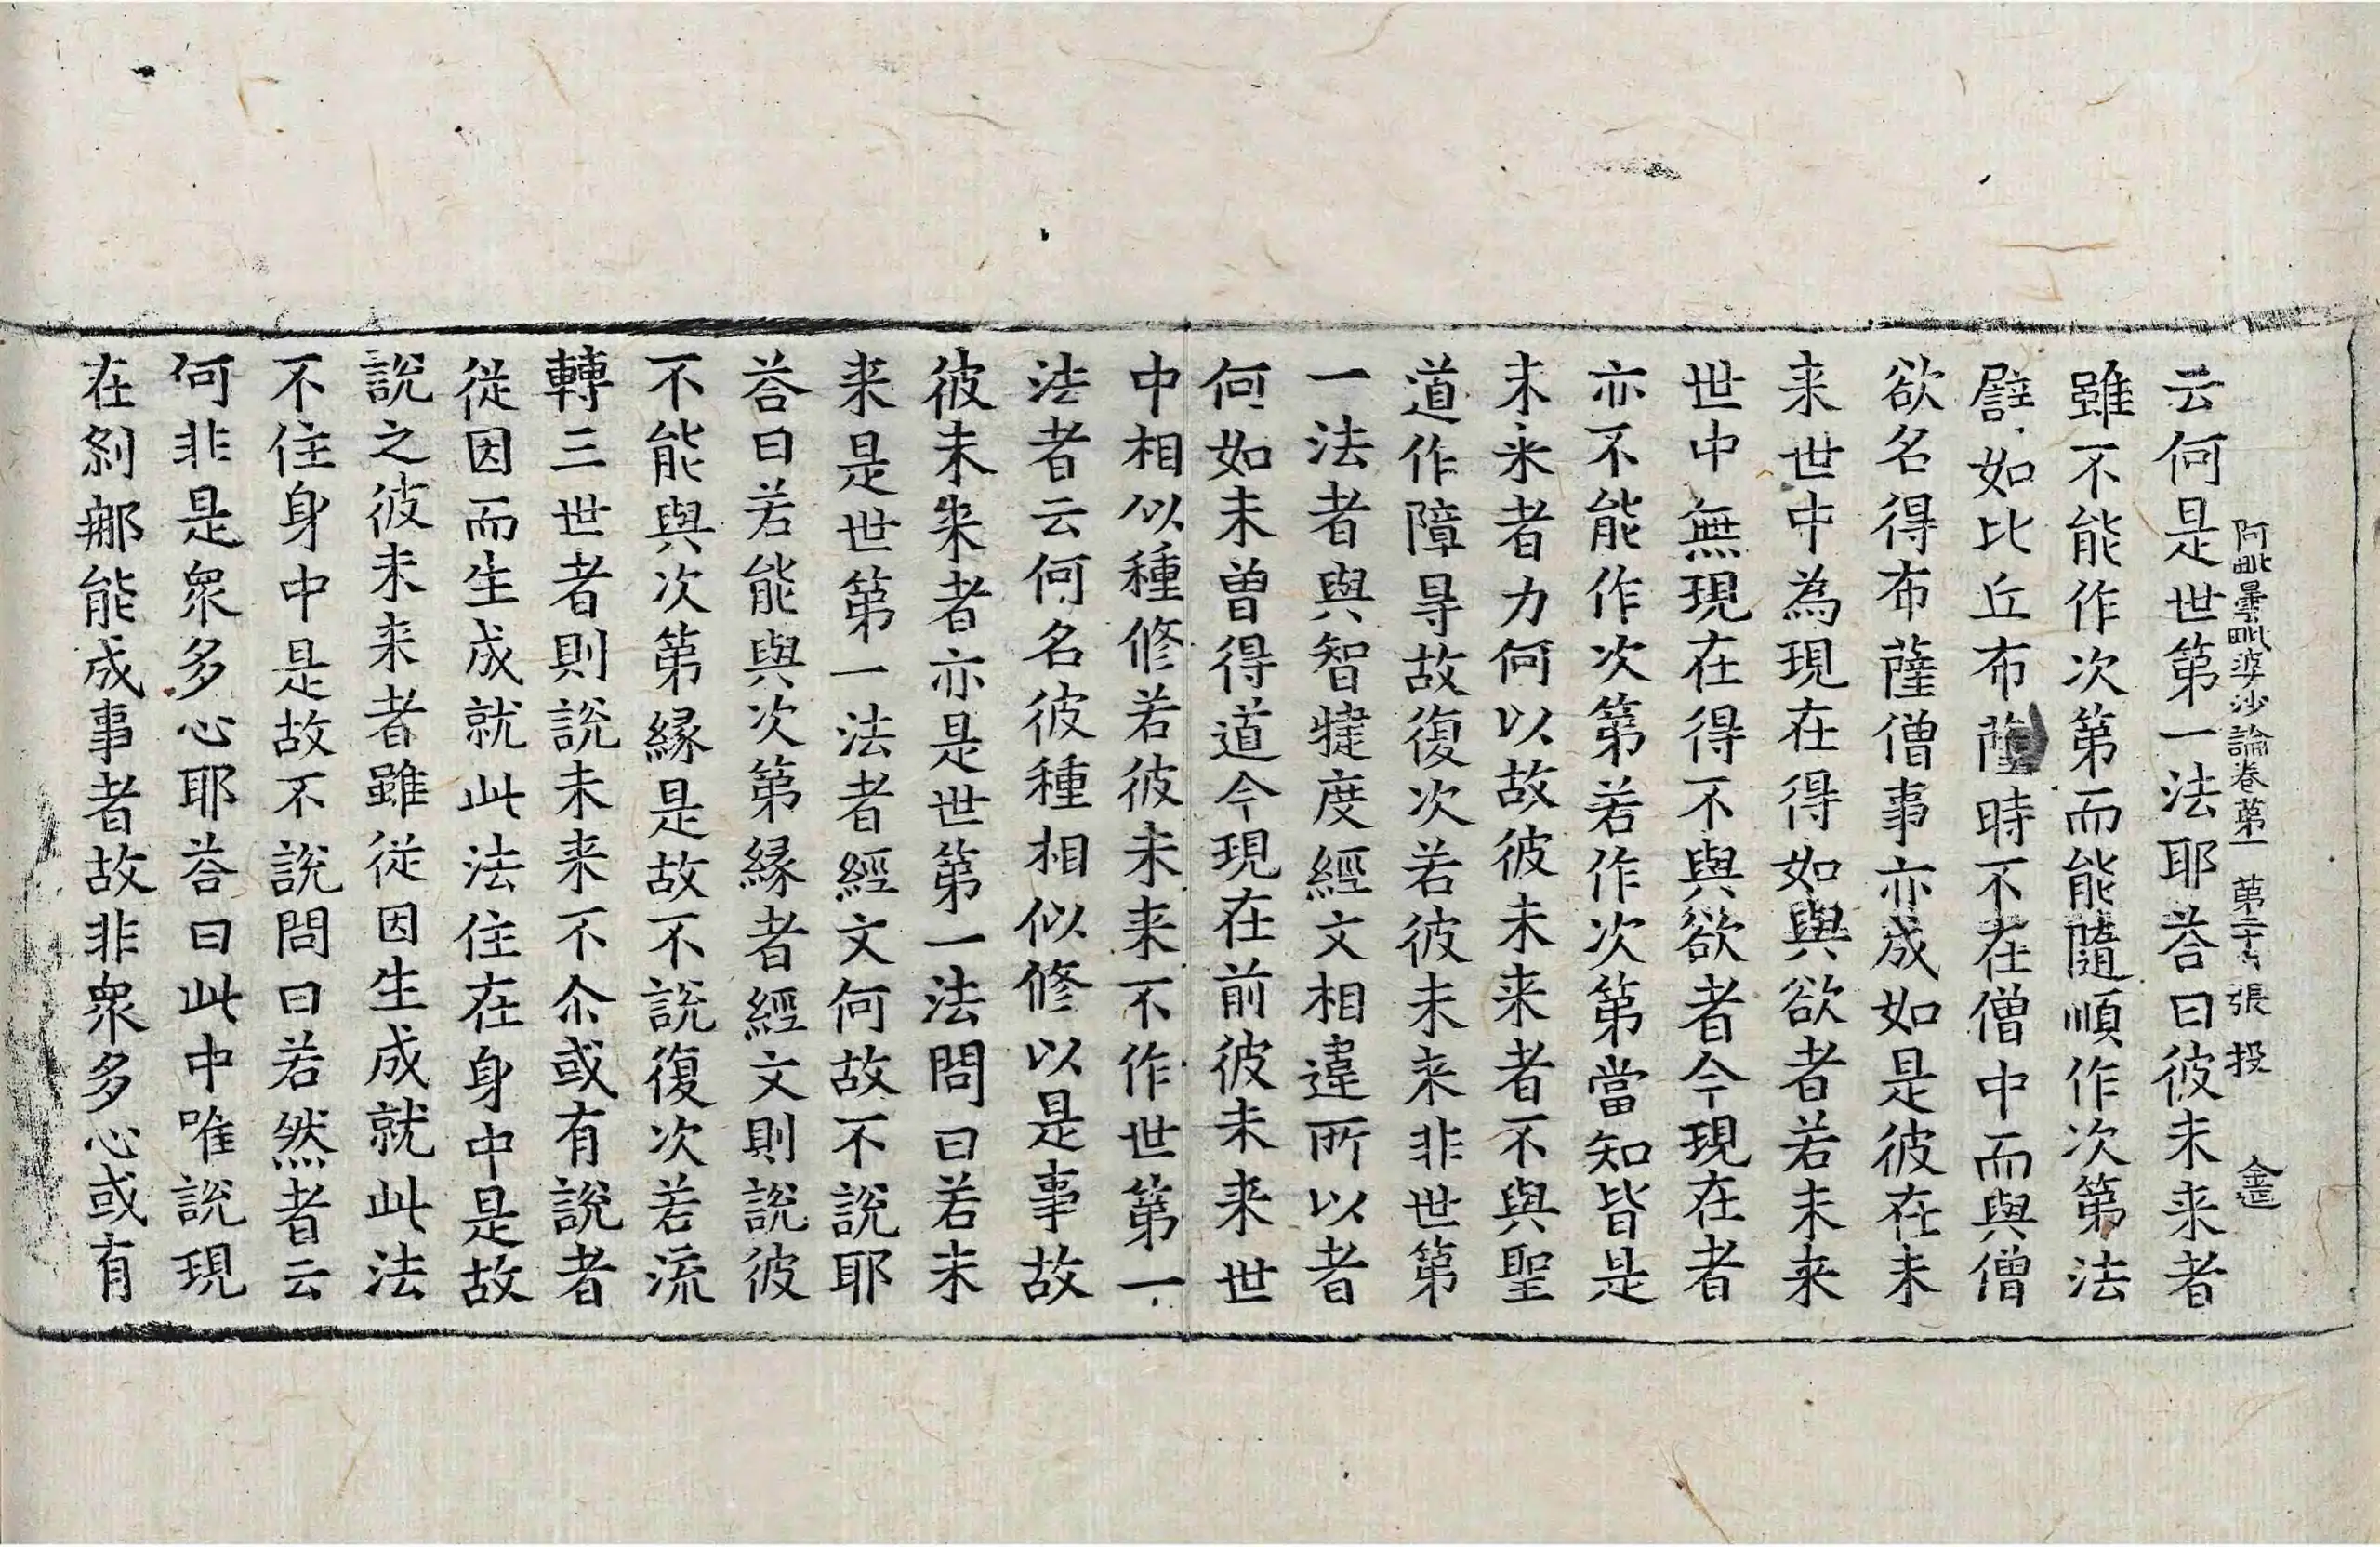 阿毗曇毗婆沙論卷第一 第二十六張 投
云何是世第一法耶荅曰彼未来者
雖不能作次第而能隨順作次第法
譬如比丘布薩時不在僧中而與僧
欲名得布薩僧事亦成如是彼在未
来世中為現在得如與欲者若未来
世中無現在得不與欲者今現在者
亦不能作次第若作次第當知皆是
未来者力何以故彼未来者不與聖
道作障㝵故復次若彼未来非世第
一法者與智犍度經文相違所以者
何如未曾得道今現在前彼未来世
中相似種修若彼未来不作世第一
法者云何名彼種相似修以是事故
彼未来者亦是世第一法問曰若未
来是世第一法者經文何故不說耶
荅曰若能與次第縁者經文則說彼
不能與次第縁是故不說復次若流
轉三世者則說未来不尒或有說者
従因而生成就此法住在身中是故
說之彼未来者雖従因生成就此法
不住身中是故不說問曰若然者云
何非是衆多心耶荅曰此中唯說現
在刹那能成事者故非衆多心或有